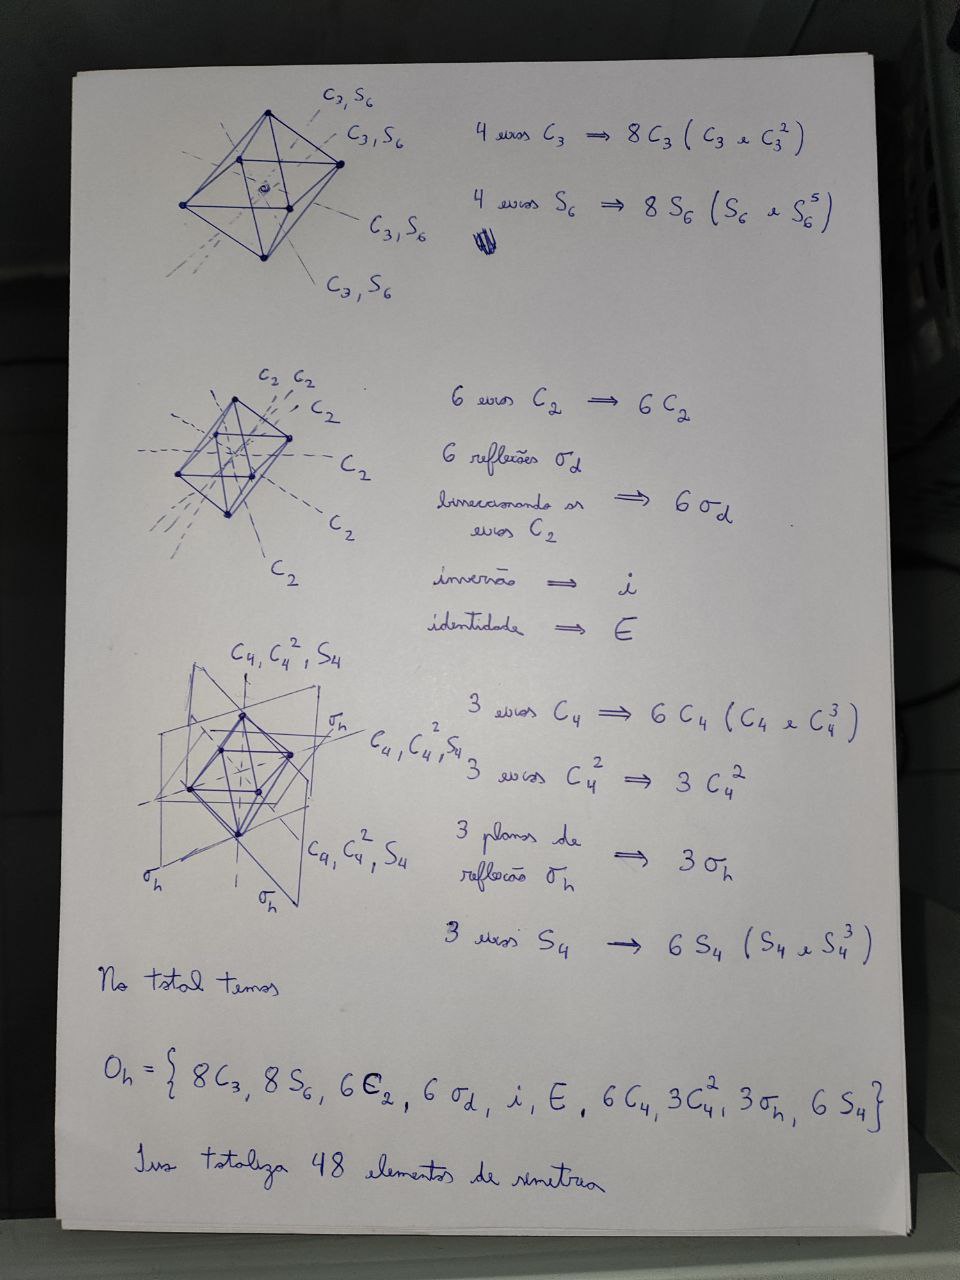 C₃, S₆
C₃, S₆
C₃, S₆
C₃, S₆
4 eixos C₃ ⇒ 8 C₃ (C₃ e C₃²)
4 eixos S₆ ⇒ 8 S₆ (S₆ e S₆⁵)
C₂ C₂
C₂
C₂
C₂
C₂
6 eixos C₂ ⇒ 6 C₂
6 reflexões σd
bisseccionando os ⇒ 6 σd
eixos C₂
inversão ⇒ i
identidade ⇒ E
C₄, C₄², S₄
σh
C₄, C₄², S₄
C₄, C₄², S₄
σh
σh
3 eixos C₄ ⇒ 6 C₄ (C₄ e C₄³)
3 eixos C₄² ⇒ 3 C₄²
3 planos de
reflexão σh ⇒ 3 σh
3 eixos S₄ → 6 S₄ (S₄ e S₄³)
No total temos
Oh = { 8 C₃, 8 S₆, 6 C₂, 6 σd, i, E, 6 C₄, 3 C₄², 3 σh, 6 S₄}
Isso totaliza 48 elementos de simetria